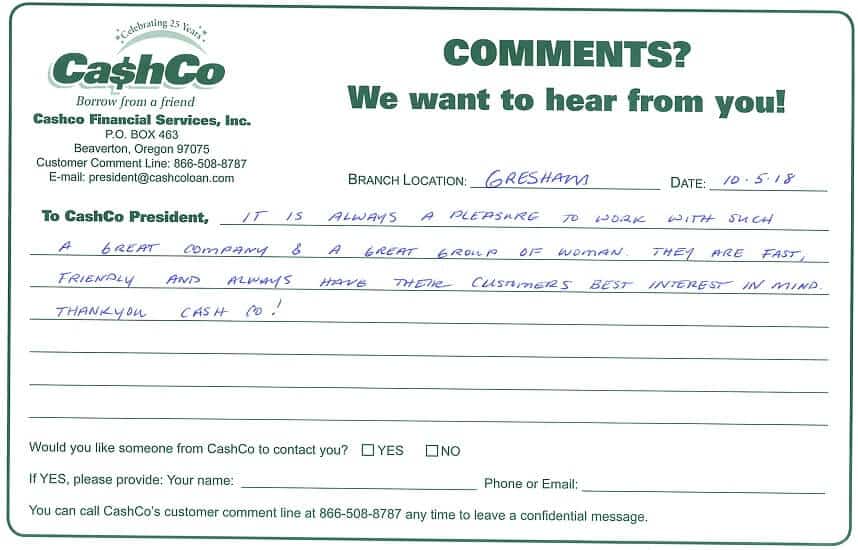 Celebrating 25 Years
Ca$hCo
Borrow from a friend
Cashco Financial Services, Inc.
P.O. BOX 463
Beaverton, Oregon 97075
Customer Comment Line: 866-508-8787
E-mail: president@cashcoloan.com
COMMENTS?
We want to hear from you!
BRANCH LOCATION: GRESHAM DATE: 10.5.18
To CashCo President, IT IS ALWAYS A PLEASURE TO WORK WITH SUCH
A GREAT COMPANY & A GREAT GROUP OF WOMAN. THEY ARE FAST,
FRIENDLY AND ALWAYS HAVE THEIR CUSTOMERS BEST INTEREST IN MIND.
THANKYOU CASH CO!
Would you like someone from CashCo to contact you? YES NO
If YES, please provide: Your name: Phone or Email:
You can call CashCo's customer comment line at 866-508-8787 any time to leave a confidential message.